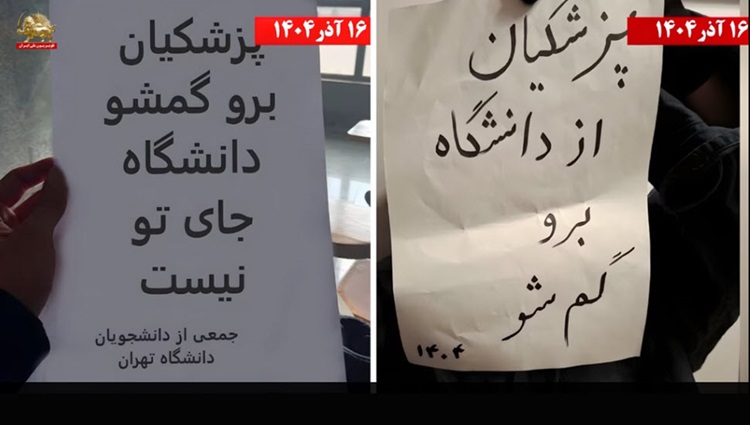 ۱۶ آذر ۱۴۰۴
پزشکیان
برو گمشو
دانشگاه
جای تو
نیست
جمعی از دانشجویان
دانشگاه تهران
۱۶ آذر ۱۴۰۴
پزشکیان
از دانشگاه
برو
گم شو
۱۴۰۴